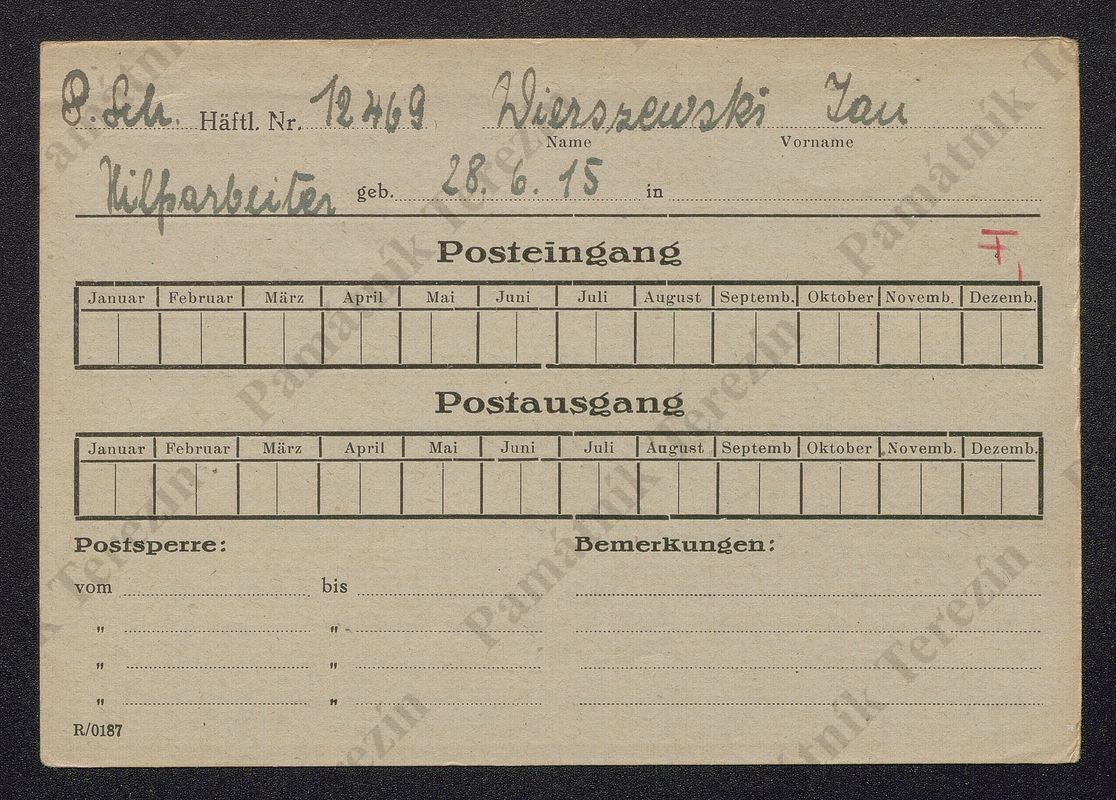 P. Sch. Häftl. Nr. 12469 Wierszewski Jan
Name Vorname
Hilfsarbeiter geb. 28. 6. 15 in
Posteingang
F
Januar Februar März April Mai Juni Juli August Septemb. Oktober Novemb. Dezemb.
Postausgang
Januar Februar März April Mai Juni Juli August Septemb Oktober Novemb. Dezemb.
Postsperre: Bemerkungen:
vom bis
" "
" "
" "
R/0187
Památník Terezín